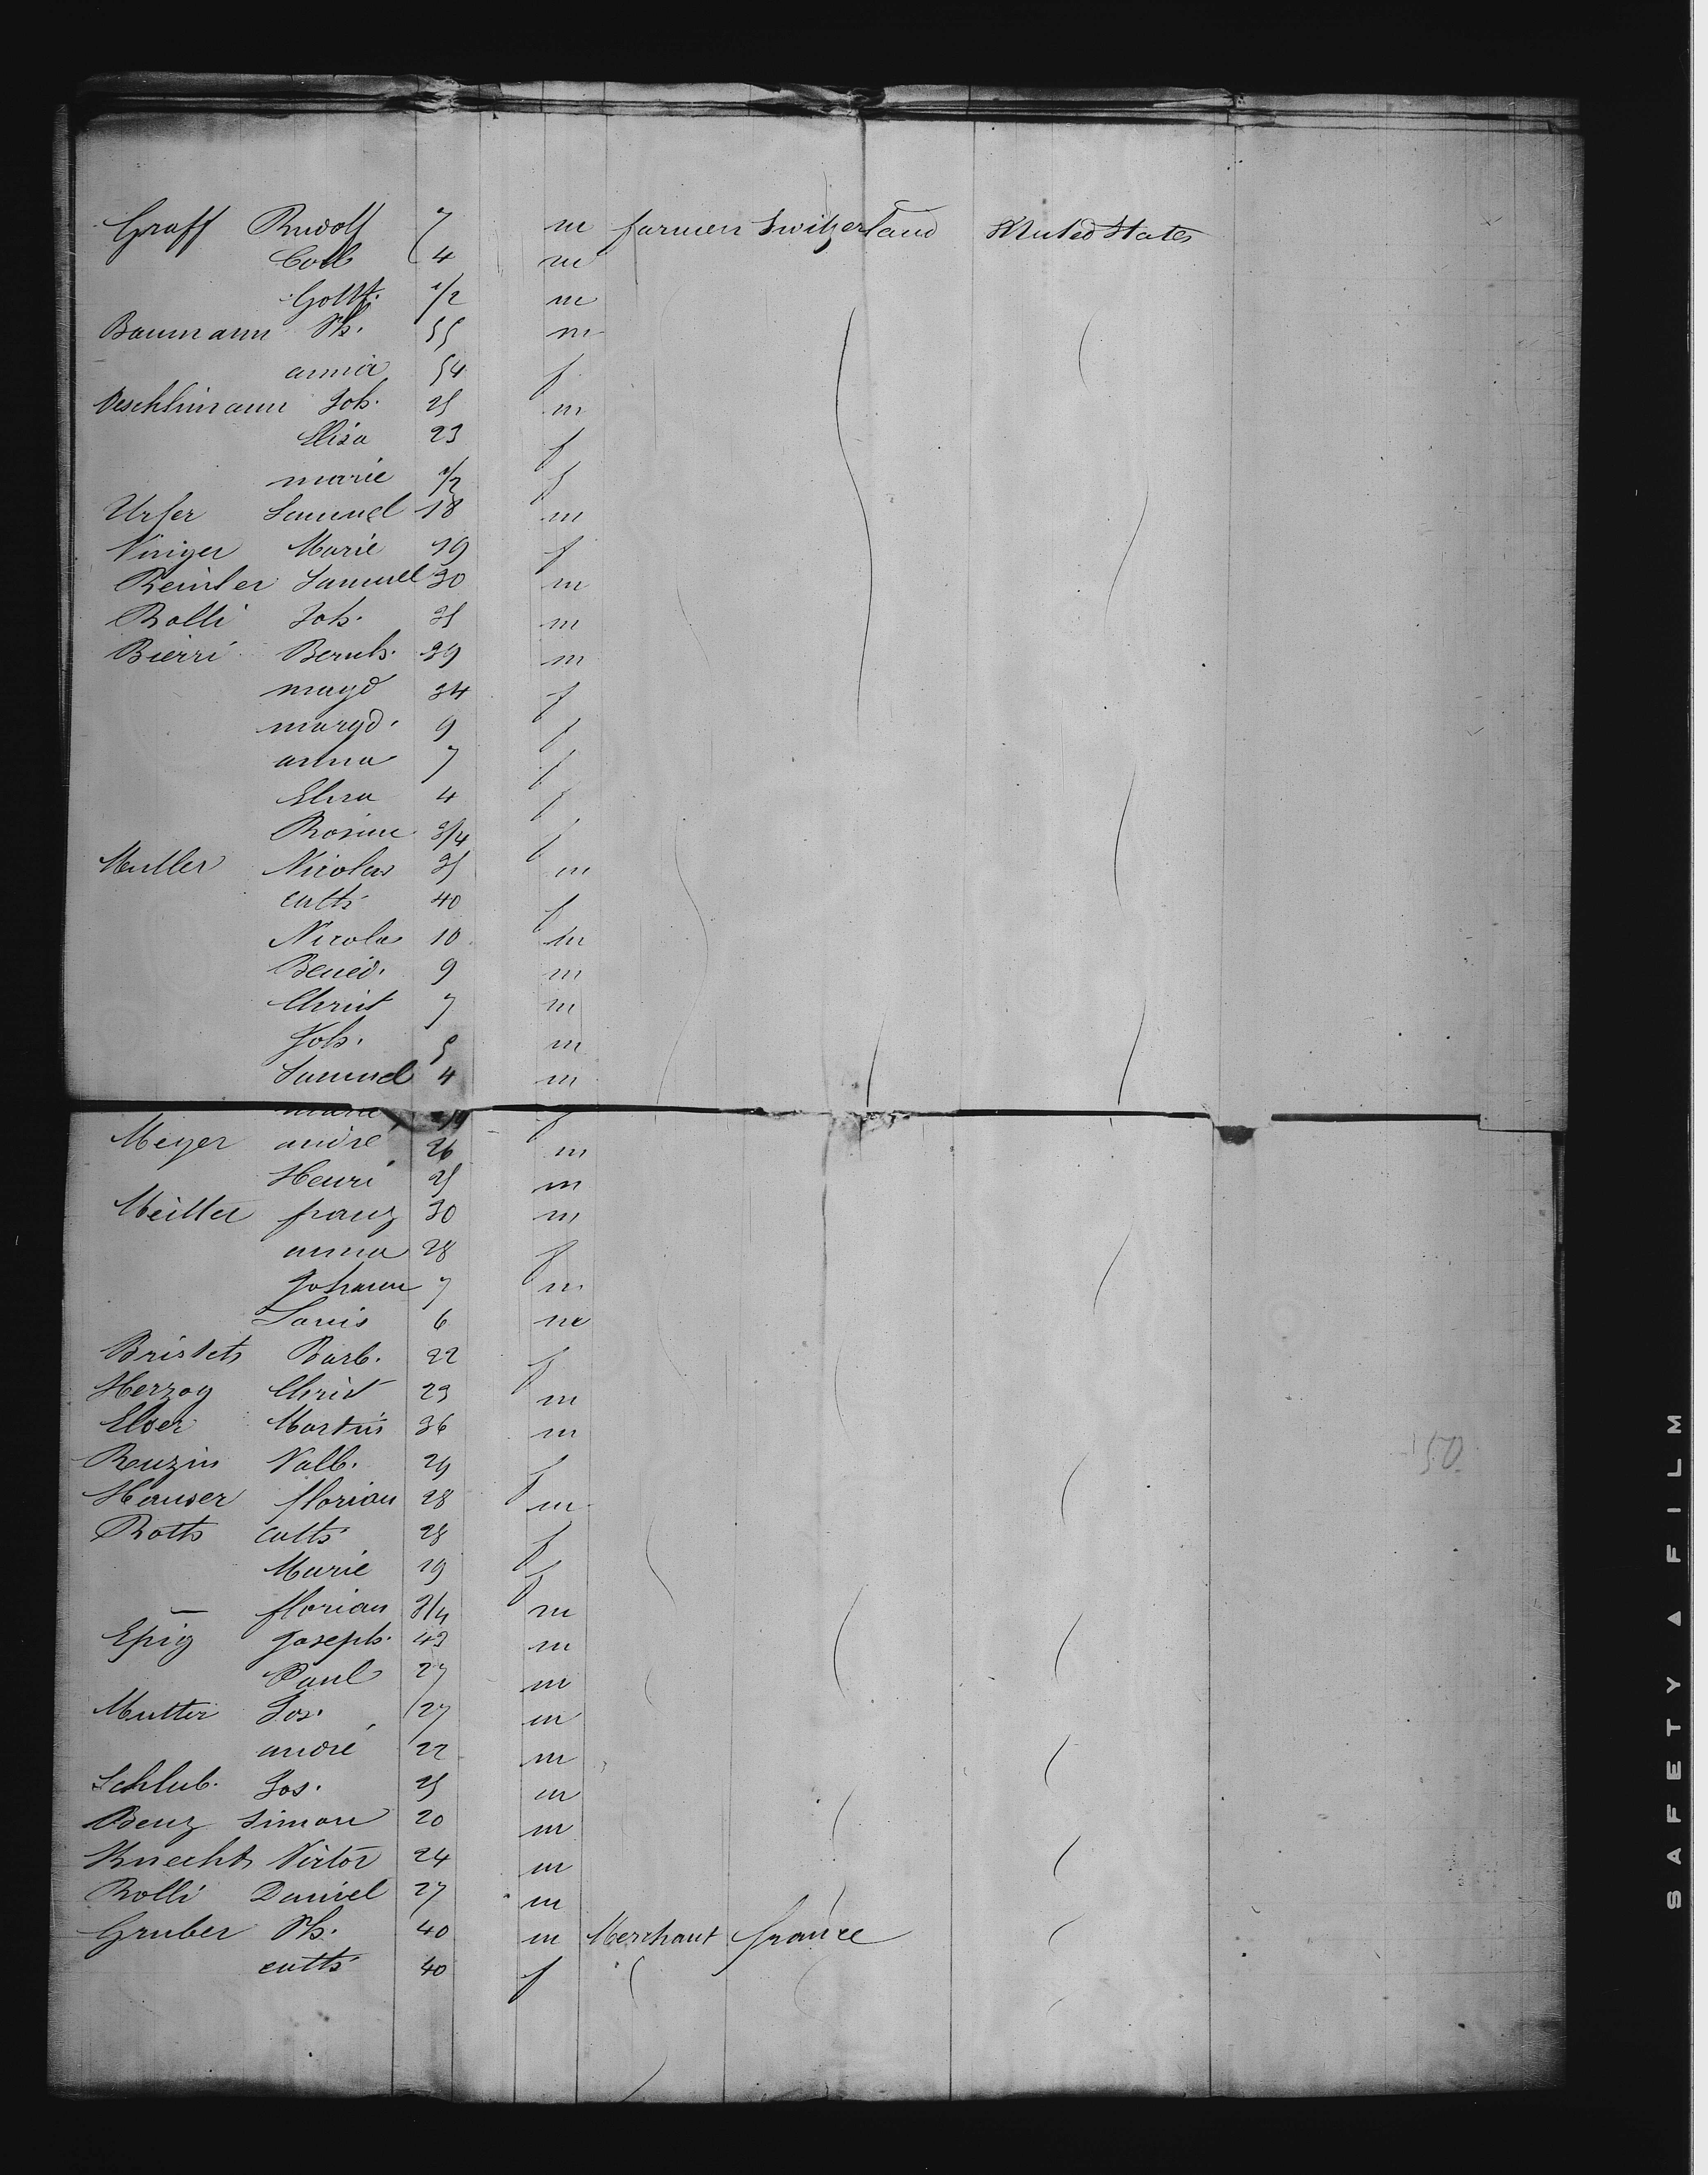 Graff Rudolf 7 m farmer Switzerland United States
4 m
Gottf. 1/2 m
Baumann Ph. 55 m
anna 54 f
Aeschlimann Joh. 25 m
Elisa 23 f
marie 1/2 f
Urfer Samuel 18 m
Viniger Marie 19 f
Samuel 30 m
Rolli Joh. 35 m
Bierri Bernh. 39 m
magd 34 f
margd. 9 f
anna 7 f
Elisa 4 f
Rosine 3/4 f
Muller Nicolas 35 m
cath 40 f
Nicolas 10 m
Bened. 9 m
Christ 7 m
Joh. 5 m
Samuel 4 m
marie f
Meyer andré 26 m
Henri 25 m
franz 30 m
anna 28 f
Johann 7 m
Louis 6 m
Barb. 22 f
Herzog Christ 23 m
Elser Martin 36 m
Ruzin Valb. 29 f
Hauser florian 28 m
Roth cath 28 f
Marie 19 f
— florian 3/4 m
Epig Joseph. 43 m
Paul 27 m
Mutter Jos. 27 m
andré 22 m
Schlub. Jos. 25 m
Benz Simon 20 m
Knecht Victor 24 m
Rolli Daniel 27 m
Gruber Ph. 40 m Merchant france
cath 40 f
150.
SAFETY ▲ FILM